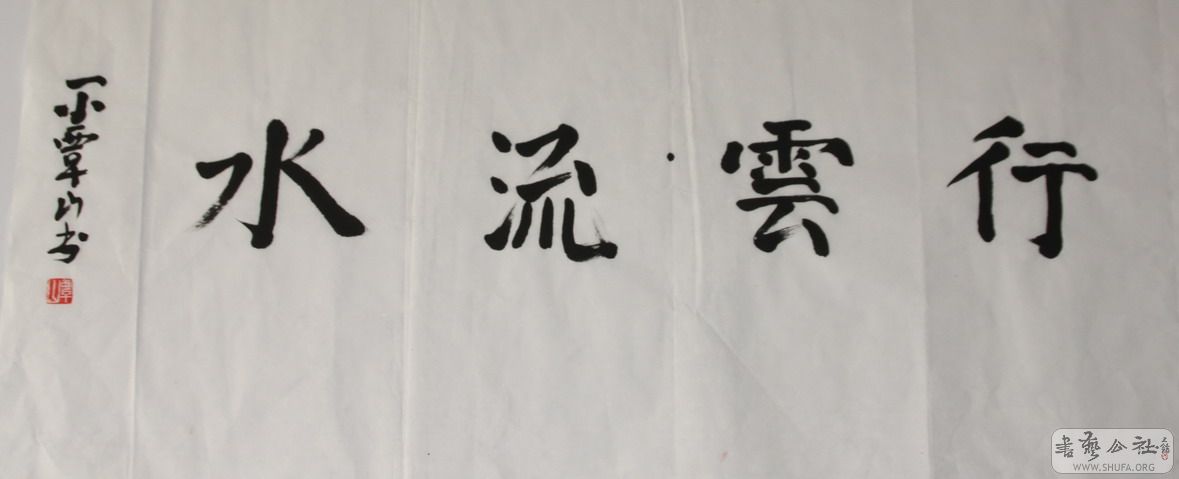 行雲流水
一小覃山书
書藝公社
WWW.SHUFA.ORG